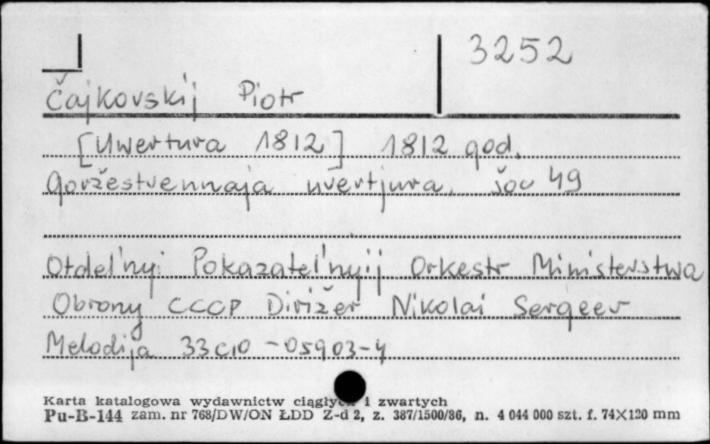 3252
Čajkovskij Piotr
[Uwertura 1812] 1812 god.
Goržestvennaja uvertjura. šou 49
Otdel'nyj Pokazatel'nyij Orkestr Ministerstwa
Obrony CCCP Dirižer Nikolai Sergeev
Melodija 33 C10 - 05903-4
Karta katalogowa wydawnictw ciągłych i zwartych
Pu-B-144 zam. nr 768/DW/ON ŁDD Z-d 2, z. 387/1500/86, n. 4 044 000 szt. f. 74X120 mm